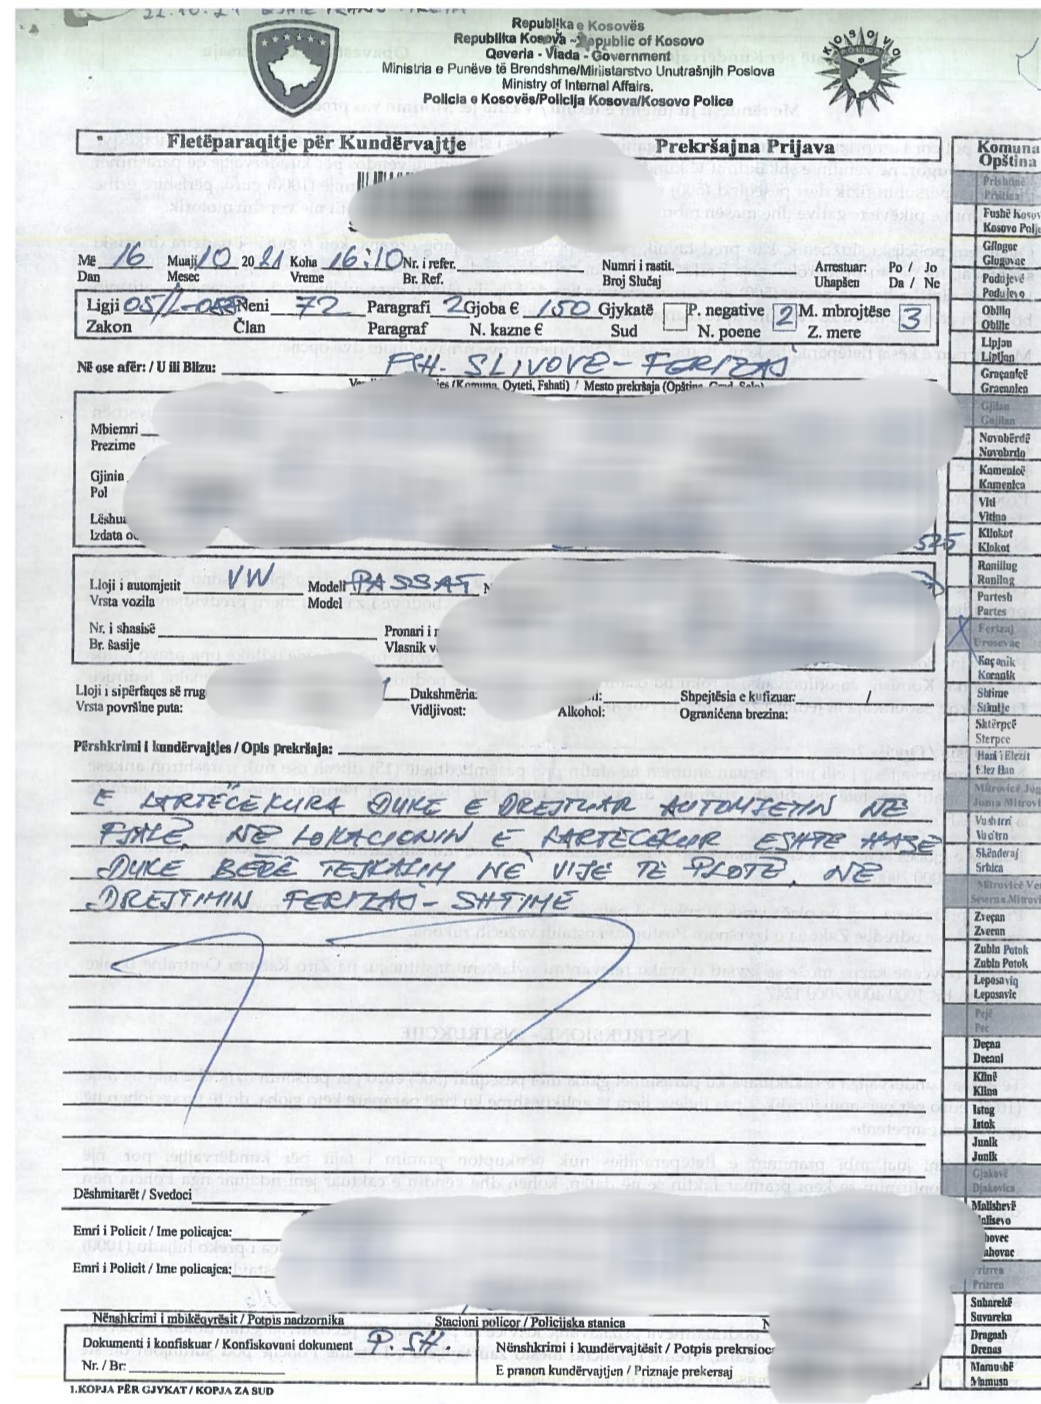 22.10.21
Republika e Kosovës
Republika Kosova - Republic of Kosovo
Qeveria - Vlada - Government
Ministria e Punëve të Brendshme/Ministarstvo Unutrašnjih Poslova
Ministry of Internal Affairs.
Policia e Kosovës/Policija Kosova/Kosovo Police
KOSOVO
POLICE
Fletëparaqitje për Kundërvajtje Prekršajna Prijava
Më 16 Muaji 10 2021 Koha 16:10 Nr. i refer. Numri i rastit. Arrestuar: Po / Jo
Dan Mesec Vreme Br. Ref. Broj Slučaj Uhapšen Da / Ne
Ligji 05/L-088 Neni 72 Paragrafi 2 Gjoba € 150 Gjykatë P. negative 2 M. mbrojtëse 3
Zakon Član Paragraf N. kazne € Sud N. poene Z. mere
Në ose afër: / U ili Blizu: FSH. SLIVOVË - FERIZAJ
(Komuna, Qyteti, Fshati) / Mesto prekršaja (Opština, Grad, Selo)
Mbiemri
Prezime
Gjinia
Pol
Lëshua
Izdata
525
Lloji i automjetit VW Modeli PASSAT
Vrsta vozila Model
Nr. i shasisë Pronari i
Br. šasije Vlasnik
Lloji i sipërfaqes së rrug Dukshmëria: Shpejtësia e kufizuar:
Vrsta površine puta: Vidljivost: Alkohol: Ograničena brezina:
Përshkrimi i kundërvajtjes / Opis prekršaja:
E LARTËCEKURA DUKE E DREJTUAR AUTOMJETIN NË
FJALË, NË LOKACIONIN E LARTECEKUR ESHTE HASË
DUKE BËRË TEJKALIM NË VIJË TË PLOTË, NË
DREJTIMIN FERIZAJ - SHTIME
Dëshmitarët / Svedoci
Emri i Policit / Ime policajca:
Emri i Policit / Ime policajca:
Nënshkrimi i mbikëqyrësit / Potpis nadzornika Stacioni policor / Policijska stanica
Dokumenti i konfiskuar / Konfiskovani dokument P. SH. Nënshkrimi i kundërvajtësit / Potpis prekrsioc
Nr. / Br: E pranon kundërvajtjen / Priznaje prekersaj
1.KOPJA PËR GJYKAT / KOPJA ZA SUD
Komuna
Opština
Prishtinë
Pristina
Fushë Kosov
Kosovo Polje
Gllogoc
Glogovac
Podujevë
Podujevo
Obiliq
Obilic
Lipjan
Lipljan
Graçanicë
Gracanica
Gjilan
Gnjilan
Novobërdë
Novobrdo
Kamenicë
Kamenica
Viti
Vitina
Kllokot
Klokot
Ranillug
Ranilug
Partesh
Partes
Ferizaj
Urosevac
Kaçanik
Kacanik
Shtime
Stimlje
Shtërpcë
Sterpce
Hani i Elezit
Elez Han
Mitrovicë Jug
Vushtrri
Vucitrn
Skënderaj
Srbica
Mitrovicë Ve
Severna Mitrovi
Zveçan
Zvecan
Zubin Potok
Zubin Potok
Leposaviq
Leposavic
Pejë
Pec
Deçan
Decani
Klinë
Klina
Istog
Istok
Junik
Junik
Gjakovë
Djakovica
Malishevë
alisevo
hovec
ahovac
Prizren
Prizren
Suharekë
Suvareka
Dragash
Drenas
Mamushë
Mamusa